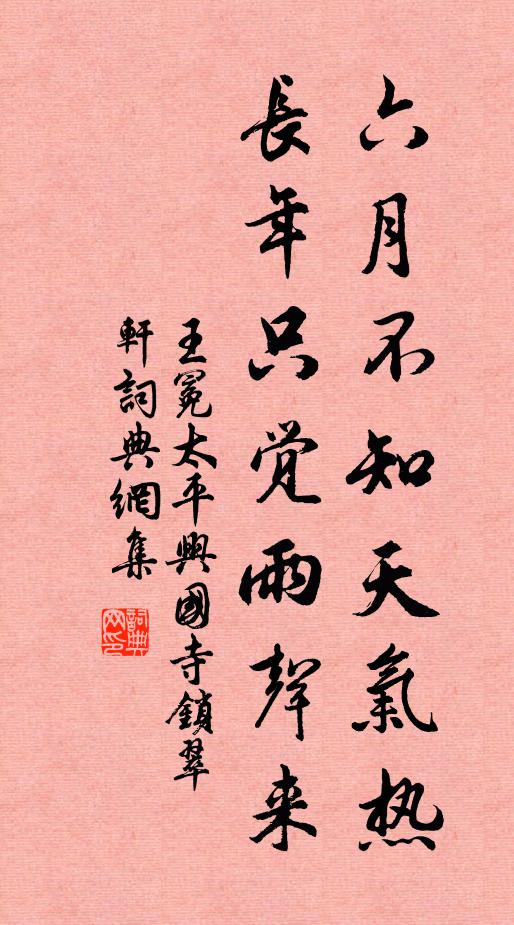 六月不知天氣热
長年只覚雨聲来
王冕太平興國寺鎖翠
軒詞典網集
詞典
网印